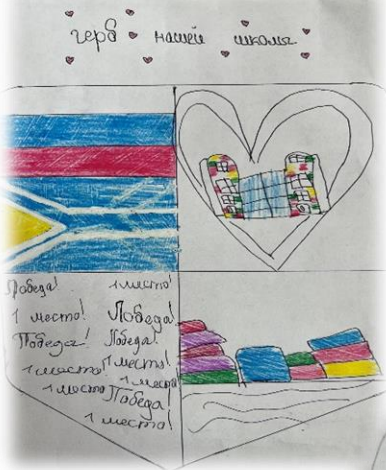 герб нашей школы
Победа! 1 место!
1 место! Победа!
Победа! Победа!
1 место! 1 место!
1 место 1 место
Победа
1 место!